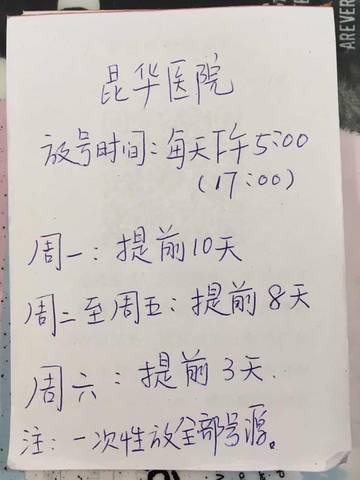 昆华医院
放号时间:每天下午5:00
(17:00)
周一:提前10天
周二至周五:提前8天
周六:提前3天.
注:一次性放全部号源。